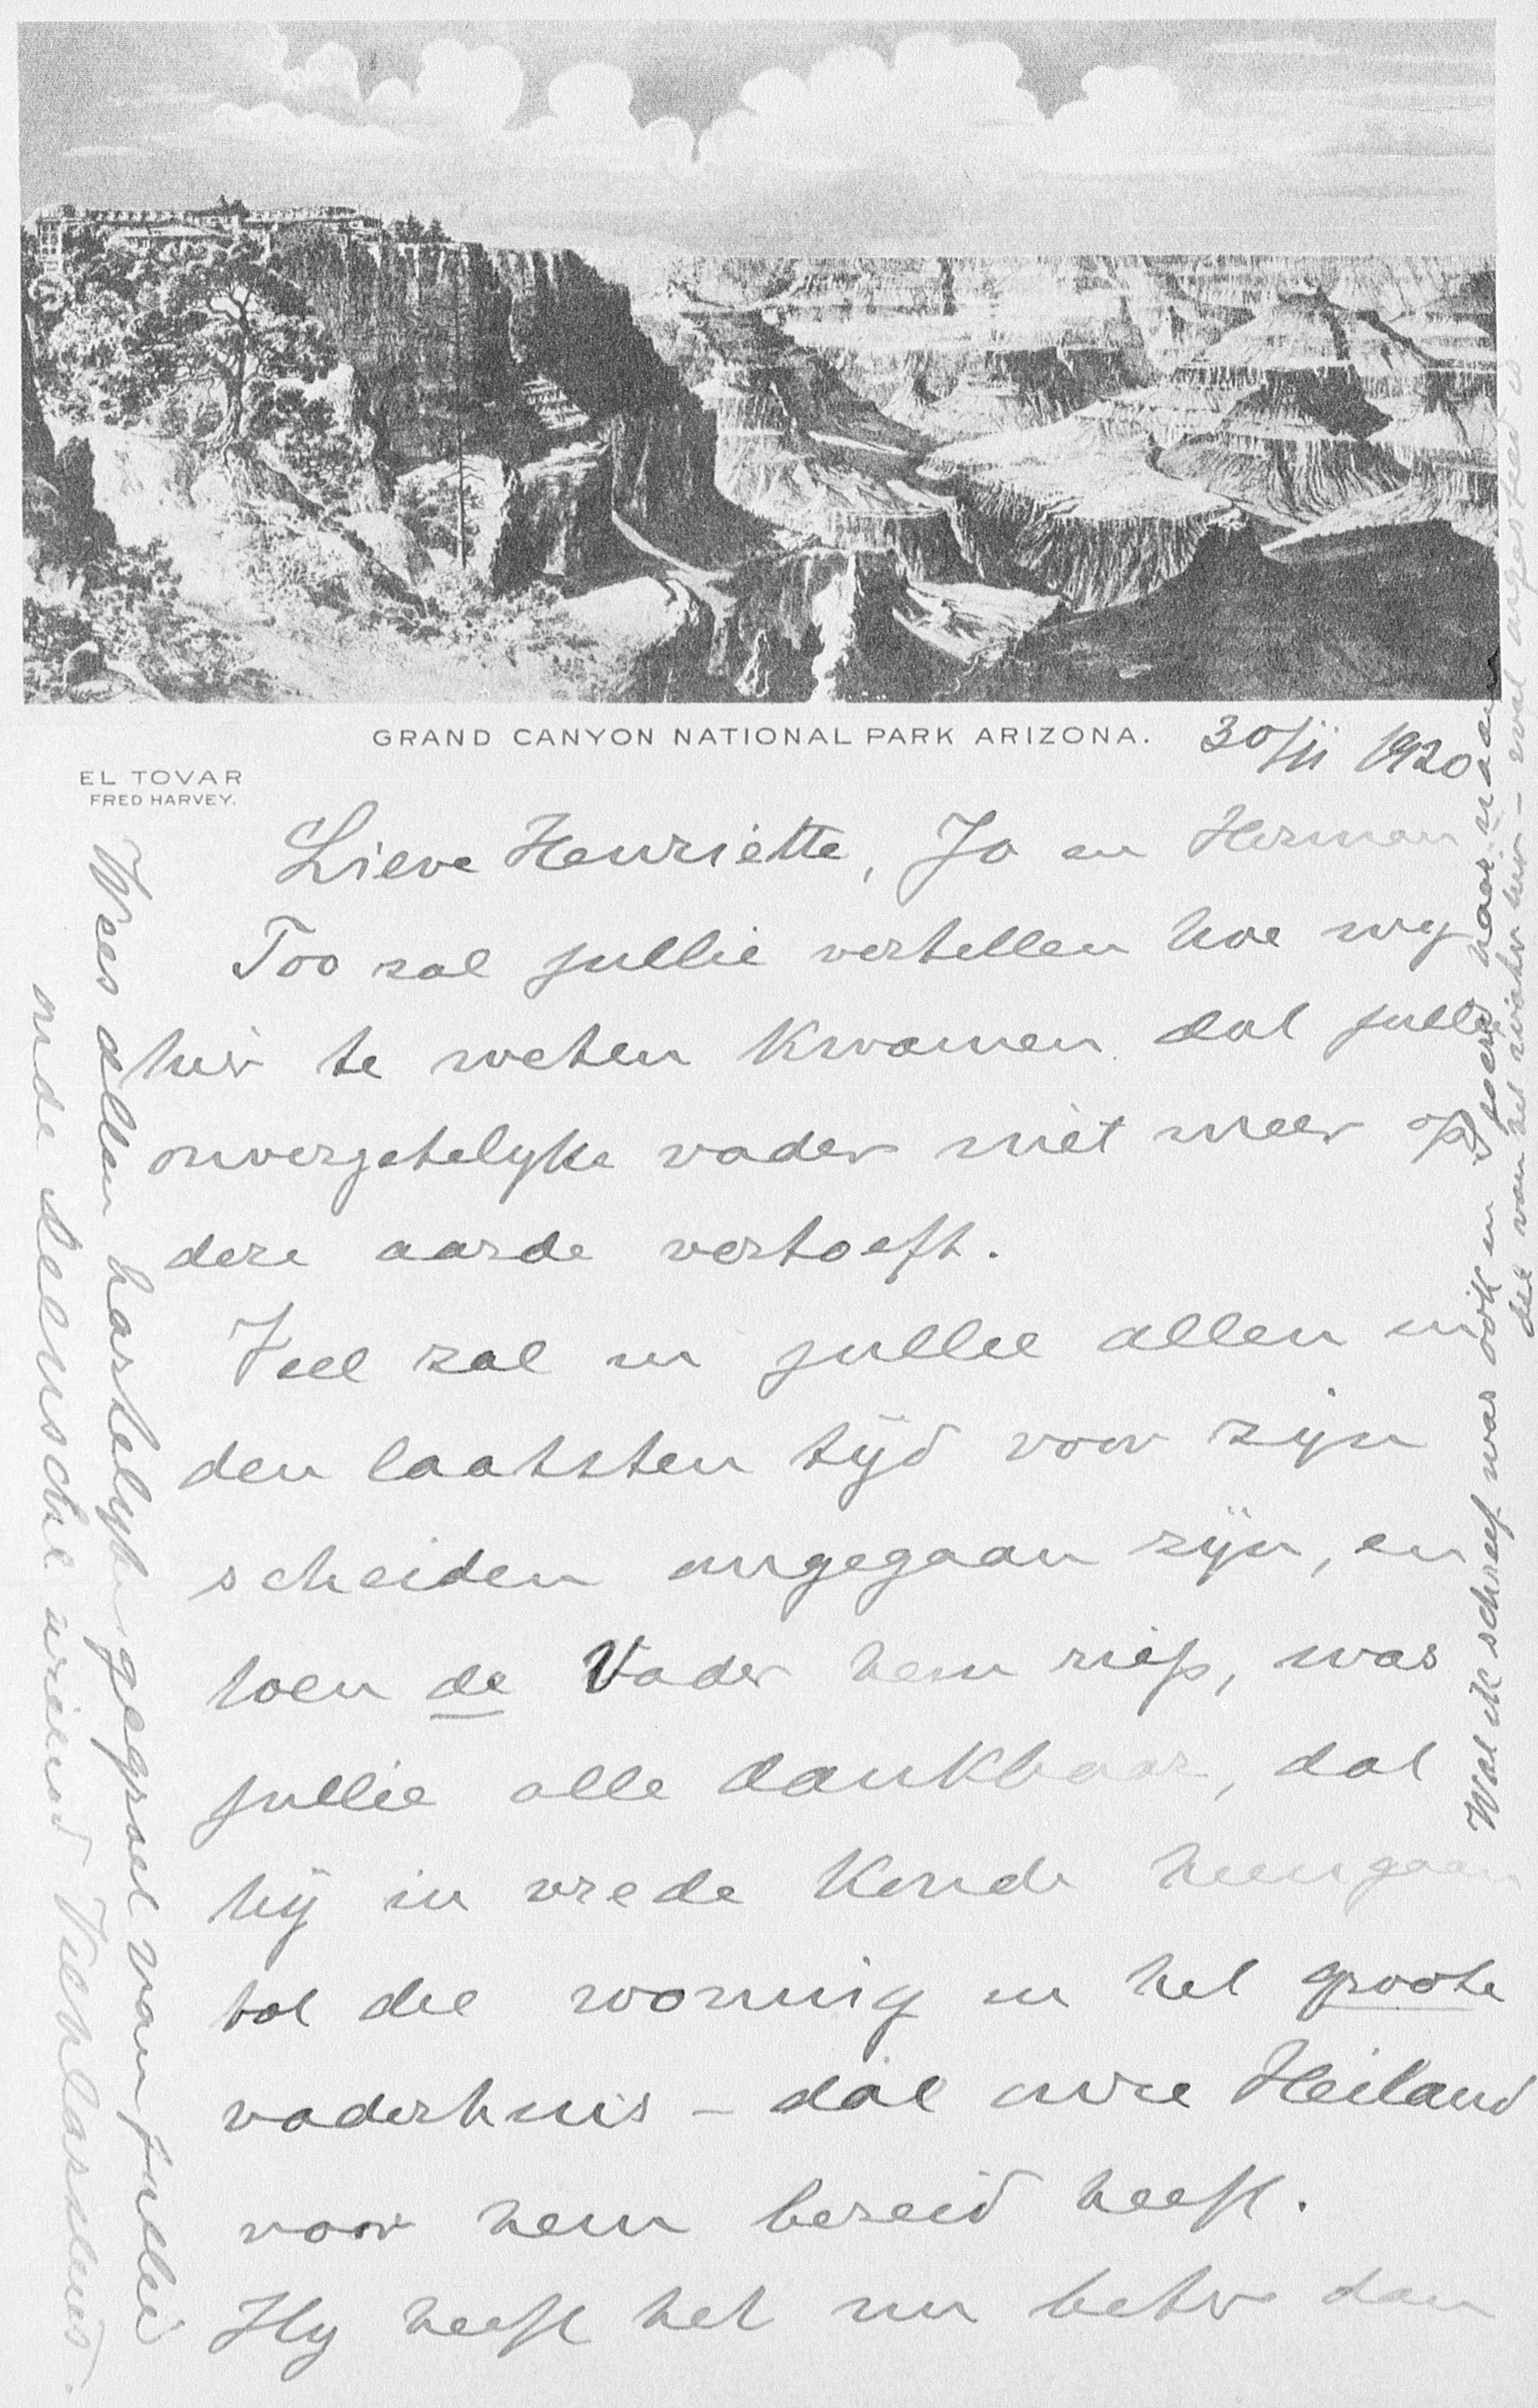 GRAND CANYON NATIONAL PARK ARIZONA.
30/11 1920
EL TOVAR
FRED HARVEY.
Lieve Henriette, Jo en Herman
Too zal jullie vertellen hoe wij
hier te weten kwamen dat jullie
onvergetelyke vader niet meer op
deze aarde vertoeft.
Veel zal in jullie allen in
den laatsten tijd voor zijn
scheiden omgegaan zijn, en
toen de Vader hem riep, was
jullie alle dankbaar, dat
hij in vrede konde heengaan
tot die woning in het groote
vaderhuis - dat onze Heiland
voor hem bereid heeft.
Hy heeft het nu beter dan
Wees allen hartelyk gegroet van jullie
oude vriend
Wat ik schreef was ook in
die van het water hier -